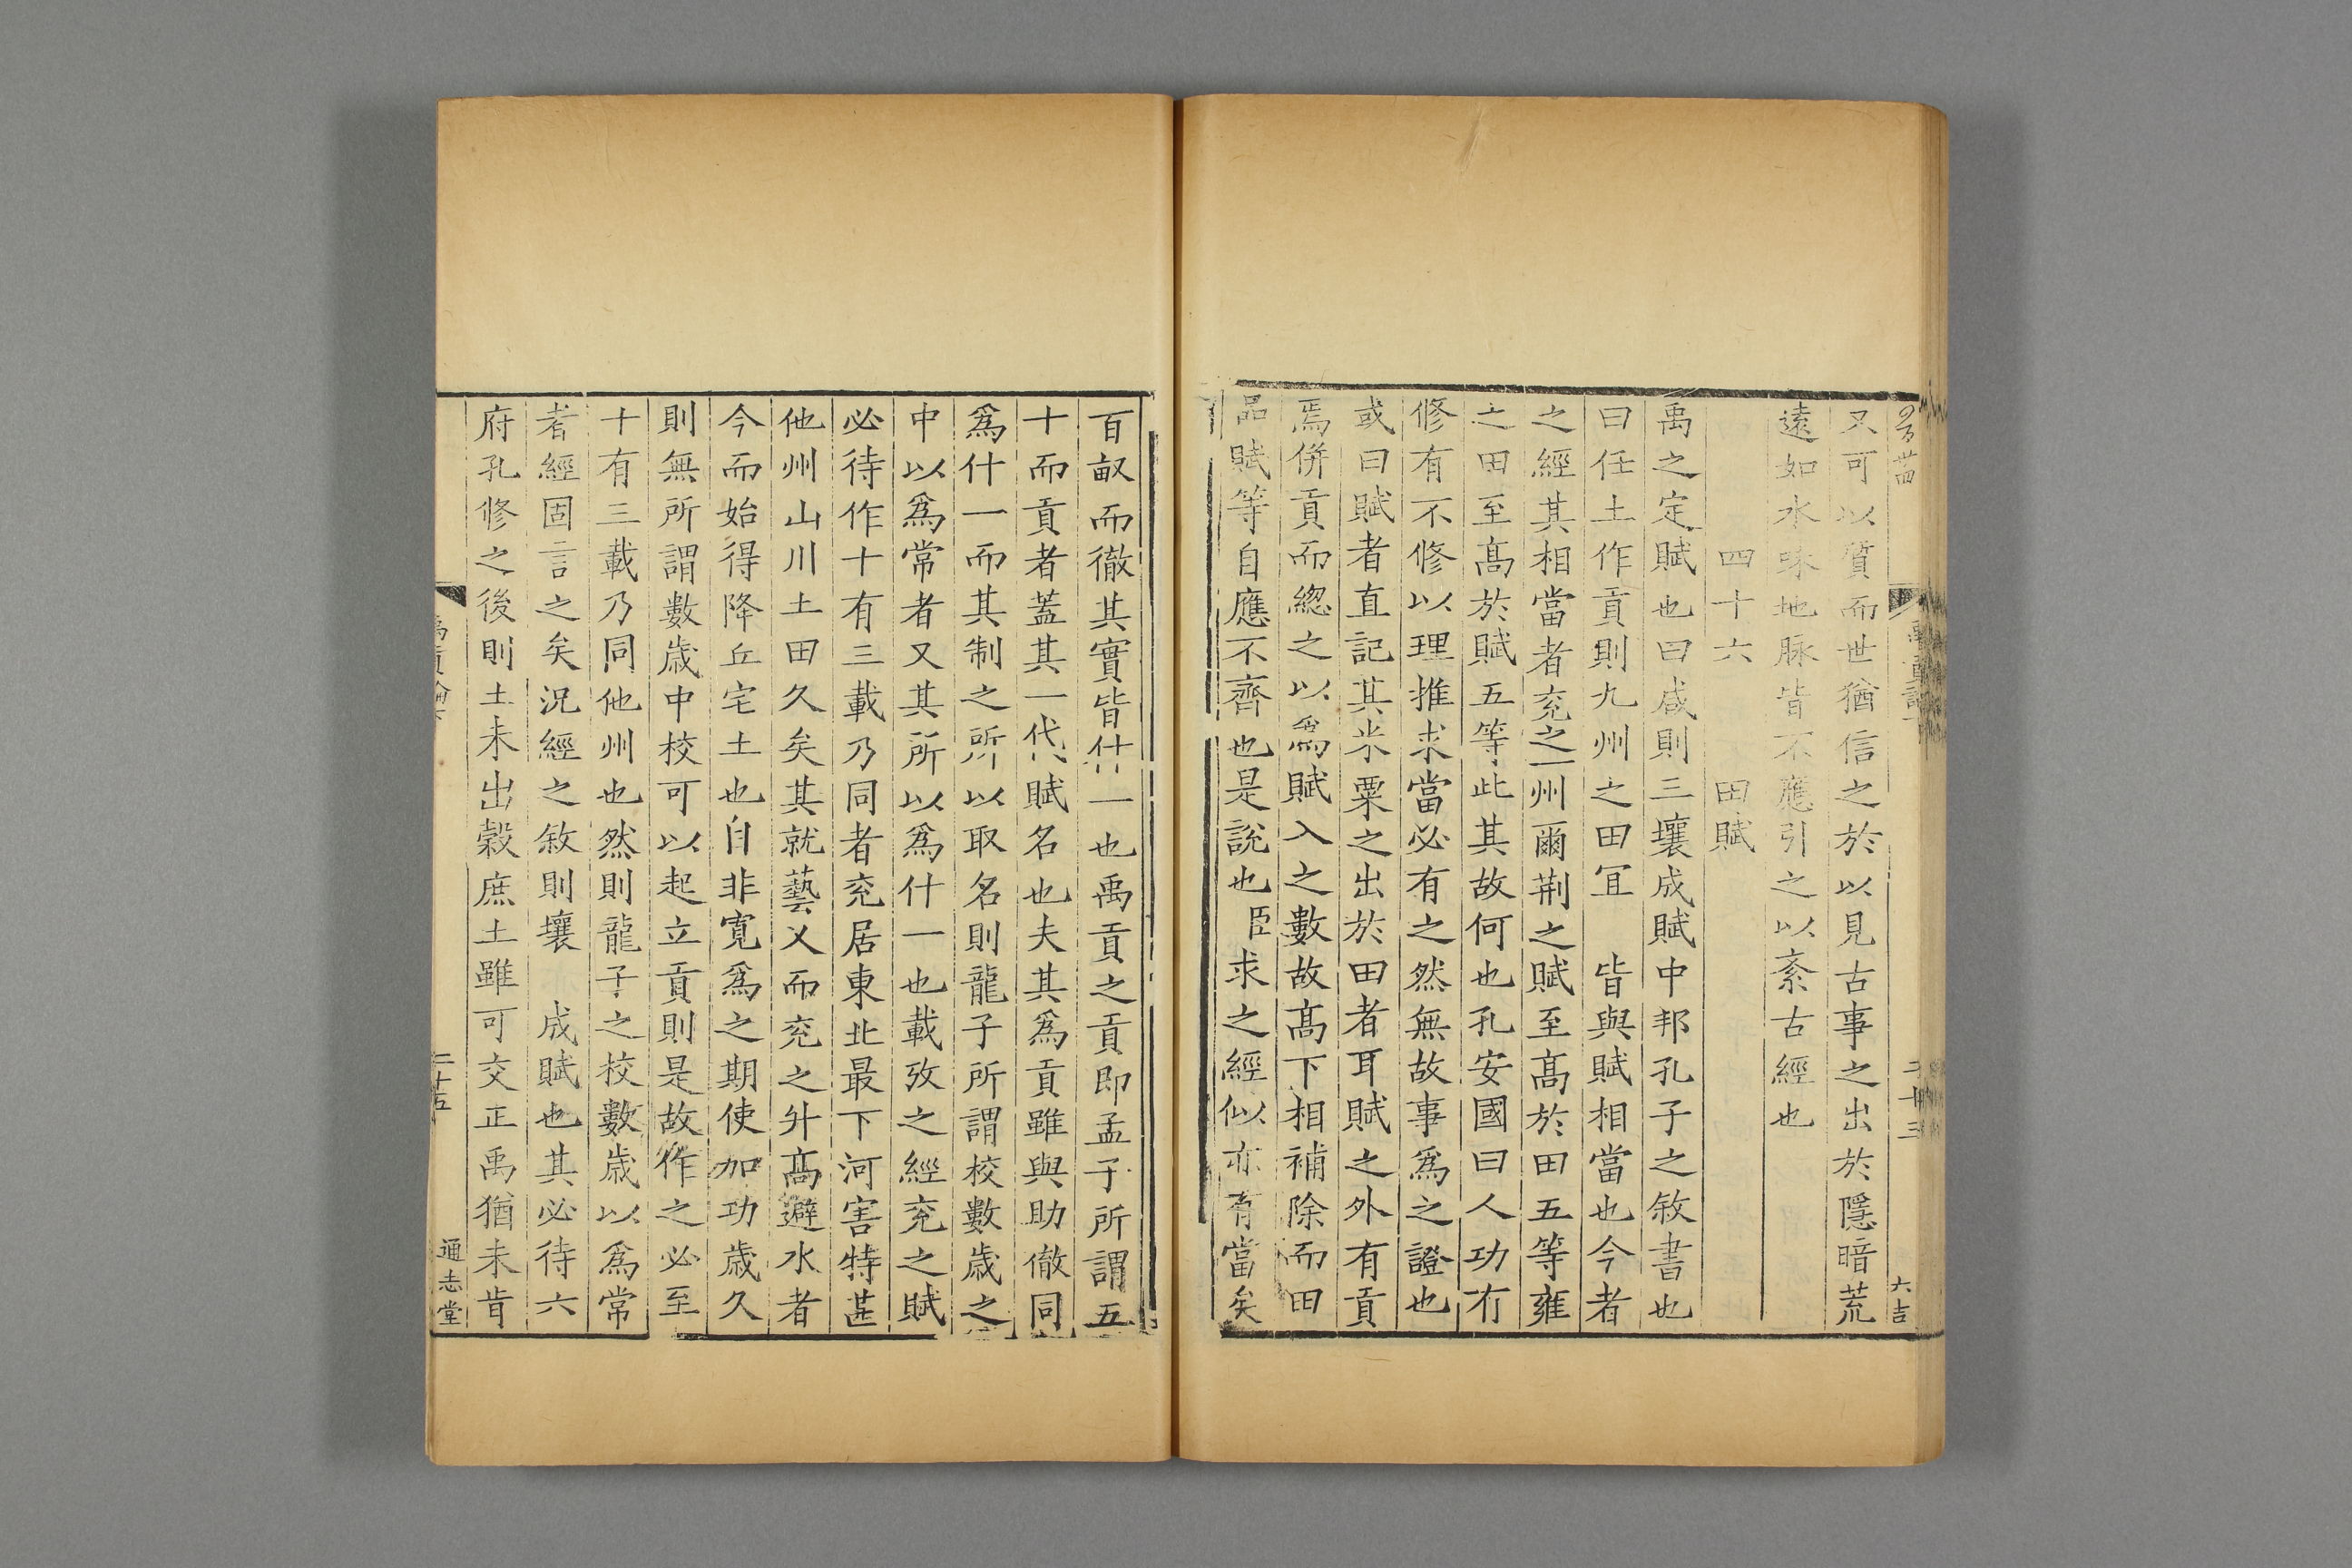 又可以質而世猶信之於以見古事之出於隱暗荒
遠如水味地脉皆不應引之以紊古經也
四十六 田賦
禹之定賦也曰咸則三壤成賦中邦孔子之敘書也
曰任土作貢則九州之田冝 皆與賦相當也今者
之經其相當者兖之一州爾荆之賦至髙於田五等雍
之田至髙於賦五等此其故何也孔安國曰人功有
修有不修以理推求當必有之然無故事爲之證也
或曰賦者直記其米粟之出於田者耳賦之外有貢
焉併貢而緫之以爲賦入之數故髙下相補除而田
品賦等自應不齊也是說也臣求之經似亦有當矣
六吉
百畝而徹其實皆什一也禹貢之貢即孟子所謂五
十而貢者蓋其一代賦名也夫其爲貢雖與助徹同
爲什一而其制之所以取名則龍子所謂校數歳之
中以爲常者又其所以爲什一也載攷之經兖之賦
必待作十有三載乃同者兖居東北最下河害特甚
他州山川土田久矣其就藝乂而兖之升髙避水者
今而始得降丘宅土也自非寛爲之期使加功歳久
則無所謂數歳中校可以起立貢則是故作之必至
十有三載乃同他州也然則龍子之校數歳以爲常
者經固言之矣況經之敘則壤 成賦也其必待六
府孔修之後則土未出榖庶土雖可交正禹猶未肯
禹貢論下
二十五
通志堂